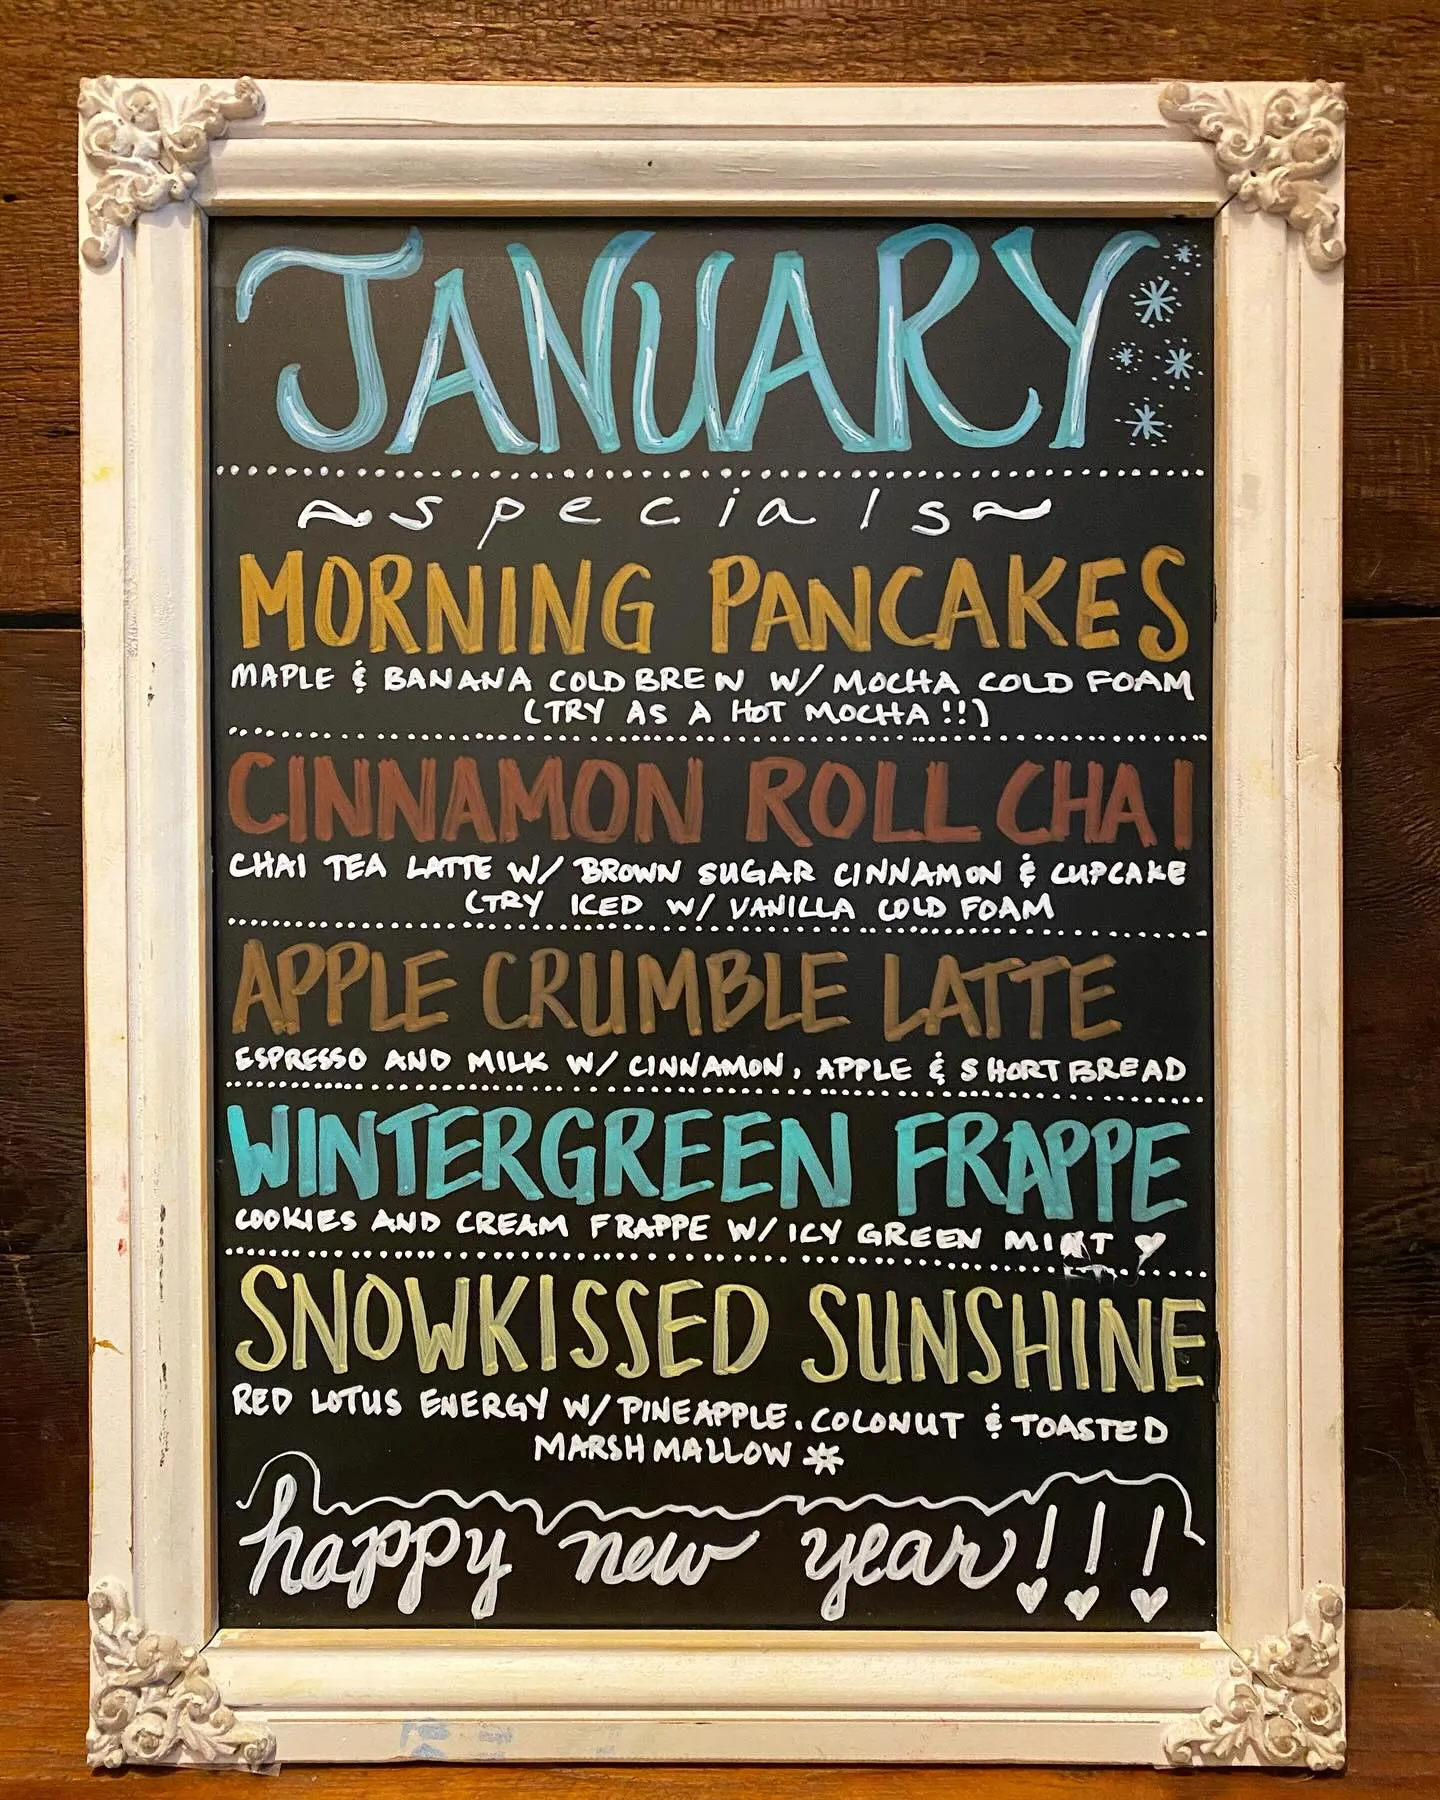 JANUARY
~specials~
MORNING PANCAKES
MAPLE & BANANA COLD BREW W/ MOCHA COLD FOAM
(TRY AS A HOT MOCHA!!)
CINNAMON ROLL CHAI
CHAI TEA LATTE W/ BROWN SUGAR CINNAMON & CUPCAKE
(TRY ICED W/ VANILLA COLD FOAM
APPLE CRUMBLE LATTE
ESPRESSO AND MILK W/ CINNAMON, APPLE & SHORTBREAD
WINTERGREEN FRAPPE
COOKIES AND CREAM FRAPPE W/ ICY GREEN MINT ♥
SNOWKISSED SUNSHINE
RED LOTUS ENERGY W/ PINEAPPLE, COLONUT & TOASTED
MARSHMALLOW *
happy new year!!!